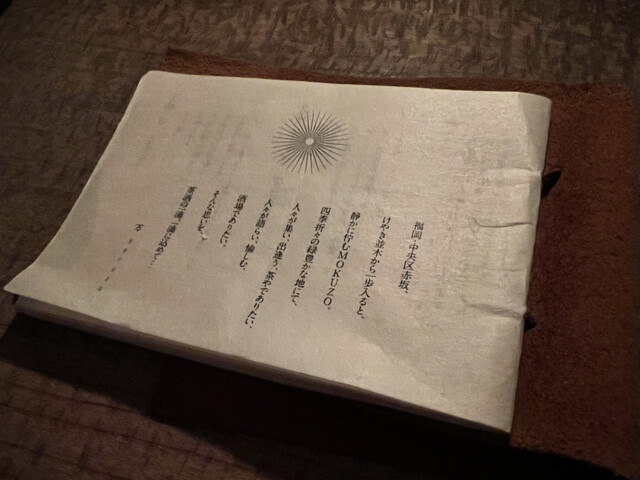 福岡・中央区赤坂、
けやき並木から一歩入ると、
静かに佇むMOKUZO。
四季折々の緑豊かな地にて、
人々が集い、出逢う、茶やでありたい、
人々が語らい、愉しむ、
酒場でありたい、
そんな思いを、
茶酒の一滴一滴に込めて…
万